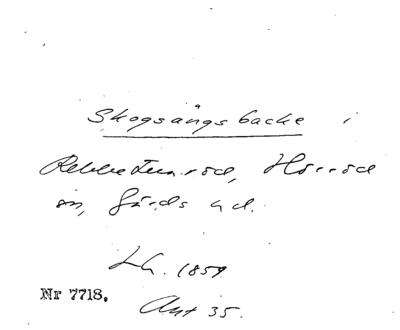 Skogsängsbacke i
Rebbetuaröd, Hörröd
sn, Gärds hd.
Lh. 1859
Nr 7718.
Aut 35.